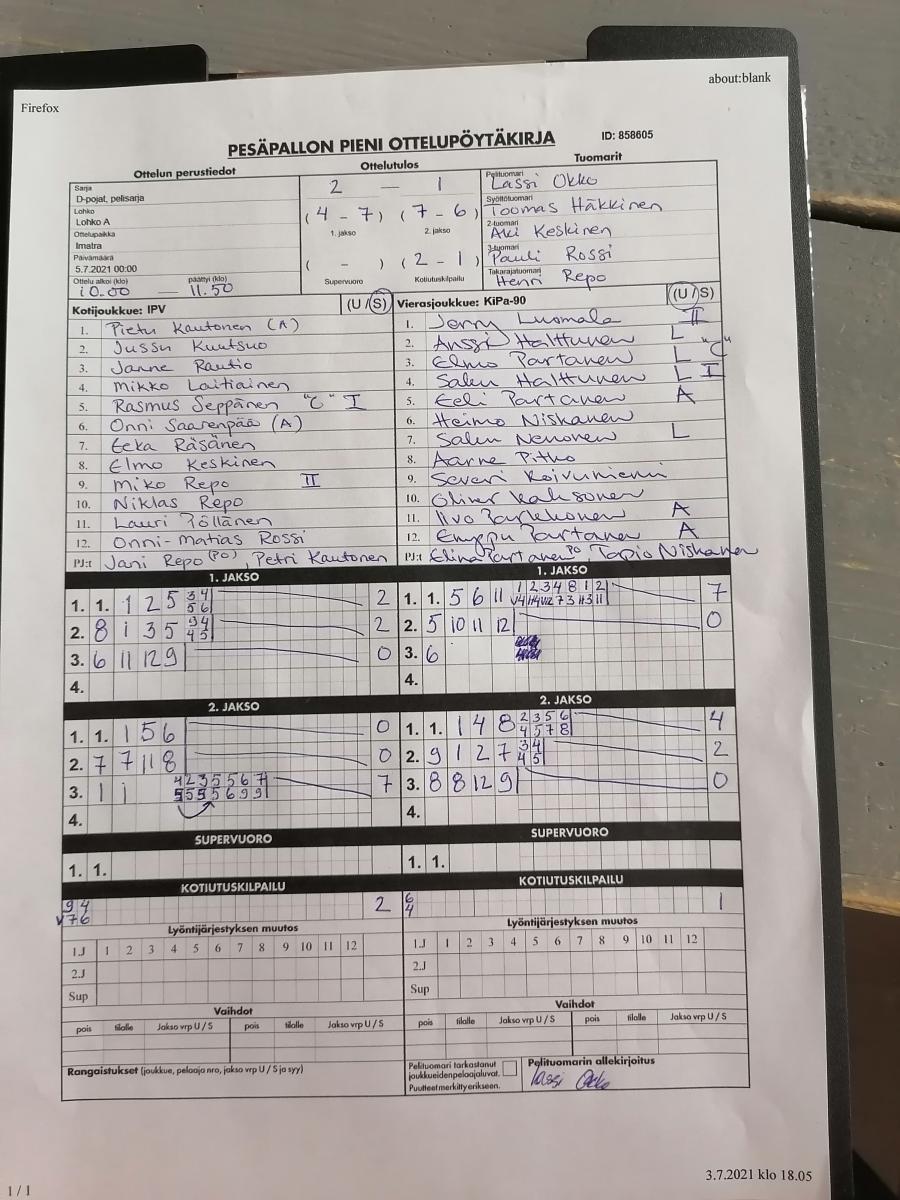 Firefox
about:blank
PESÄPALLON PIENI OTTELUPÖYTÄKIRJA
ID: 858605
Ottelun perustiedot
Ottelutulos
Tuomarit
Sarja
D-pojat, pelisarja
Lohko
Lohko A
Ottelupaikka
Imatra
Päivämäärä
5.7.2021 00:00
Ottelu alkoi (klo) päättyi (klo)
10.00 — 11.50
2 — 1
(4 - 7) (7 - 6)
1. jakso 2. jakso
( - ) (2 - 1)
Supervuoro Kotiutuskilpailu
Pelituomari
Lassi Okko
Syöttötuomari
Toomas Häkkinen
2-tuomari
Aki Keskinen
3-tuomari
Pauli Rossi
Takarajatuomari
Henri Repo
Kotijoukkue: IPV (U / S)
1. Pietu Kautonen (A)
2. Jussu Kuutsuo
3. Janne Rautio
4. Mikko Laitiainen
5. Rasmus Seppänen "C" I
6. Onni Saarenpää (A)
7. Eeka Räsänen
8. Elmo Keskinen
9. Miko Repo II
10. Niklas Repo
11. Lauri Pöllänen
12. Onni-Matias Rossi
PJ:t Jani Repo (PO), Petri Kautonen
Vierasjoukkue: KiPa-90 (U / S)
1. Jerry Luomala II
2. Anssi Halttunen L
3. Elmo Partanen L "C"
4. Salen Halttunen L I
5. Eeli Partanen A
6. Heimo Niskanen
7. Salen Nenonen L
8. Aarne Pitko
9. Severi Koivuniemi
10. Oliver Kaksonen
11. Iivo Parkkonen A
12. Emppu Partanen A
PJ:t Elina Partanen PO, Tapio Niskanen
1. JAKSO
1. 1. 1 2 5 3 4 2
5 6
2. 8 1 3 5 3 4 2
4 5
3. 6 11 12 9 0
4.
1. JAKSO
1. 1. 5 6 11 1 2 3 4 8 1 2 7
2. 5 10 11 12 0
3. 6
4.
2. JAKSO
1. 1. 1 5 6 0
2. 7 7 11 8 0
3. 1 1 4 2 3 5 5 6 7 7
5 5 5 5 6 9 9
4.
2. JAKSO
1. 1. 1 4 8 2 3 5 6 4
4 5 7 8
2. 9 1 2 7 3 4 2
4 5
3. 8 8 12 9 0
4.
SUPERVUORO
1. 1.
SUPERVUORO
1. 1.
KOTIUTUSKILPAILU
9 4 2
v7 6
KOTIUTUSKILPAILU
6 1
4
Lyöntijärjestyksen muutos
1.J 1 2 3 4 5 6 7 8 9 10 11 12
2.J
Sup
Lyöntijärjestyksen muutos
1.J 1 2 3 4 5 6 7 8 9 10 11 12
2.J
Sup
Vaihdot
pois tilalle Jakso vrp U / S pois tilalle Jakso vrp U / S
Vaihdot
pois tilalle Jakso vrp U / S pois tilalle Jakso vrp U / S
Rangaistukset (joukkue, pelaaja nro, jakso vrp U / S ja syy)
Pelituomari tarkastanut
joukkueiden pelaajaluvat.
Puutteet merkitty erikseen.
Pelituomarin allekirjoitus
Lassi Okko
1 / 1
3.7.2021 klo 18.05